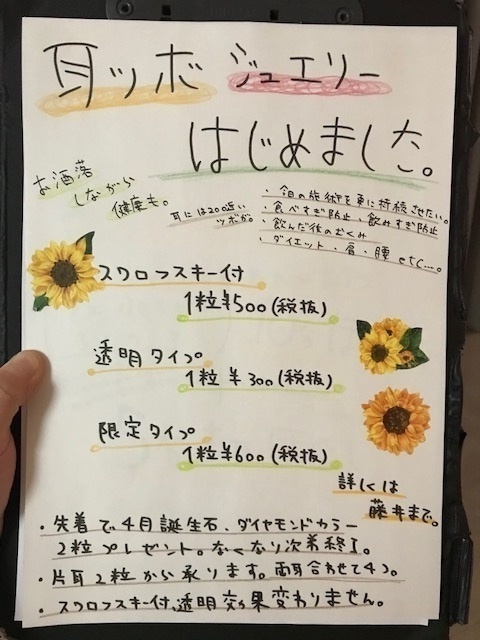 耳ツボ ジュエリー
はじめました。
お洒落
しながら
健康も。
耳には200近い
ツボが。
・今日の施術を更に持続させたい。
・食べすぎ防止・飲みすぎ防止
・飲んだ後のむくみ
・ダイエット・肩・腰 etc....。
スワロフスキー付
1粒¥500(税抜)
透明タイプ
1粒¥300(税抜)
限定タイプ
1粒¥600(税抜)
詳しくは
藤井まで。
・先着で4月誕生石、ダイヤモンドカラー
2粒プレゼント。なくなり次第終了。
・片耳2粒から承ります。両耳合わせて4コ。
・スワロフスキー付、透明 効果変わりません。